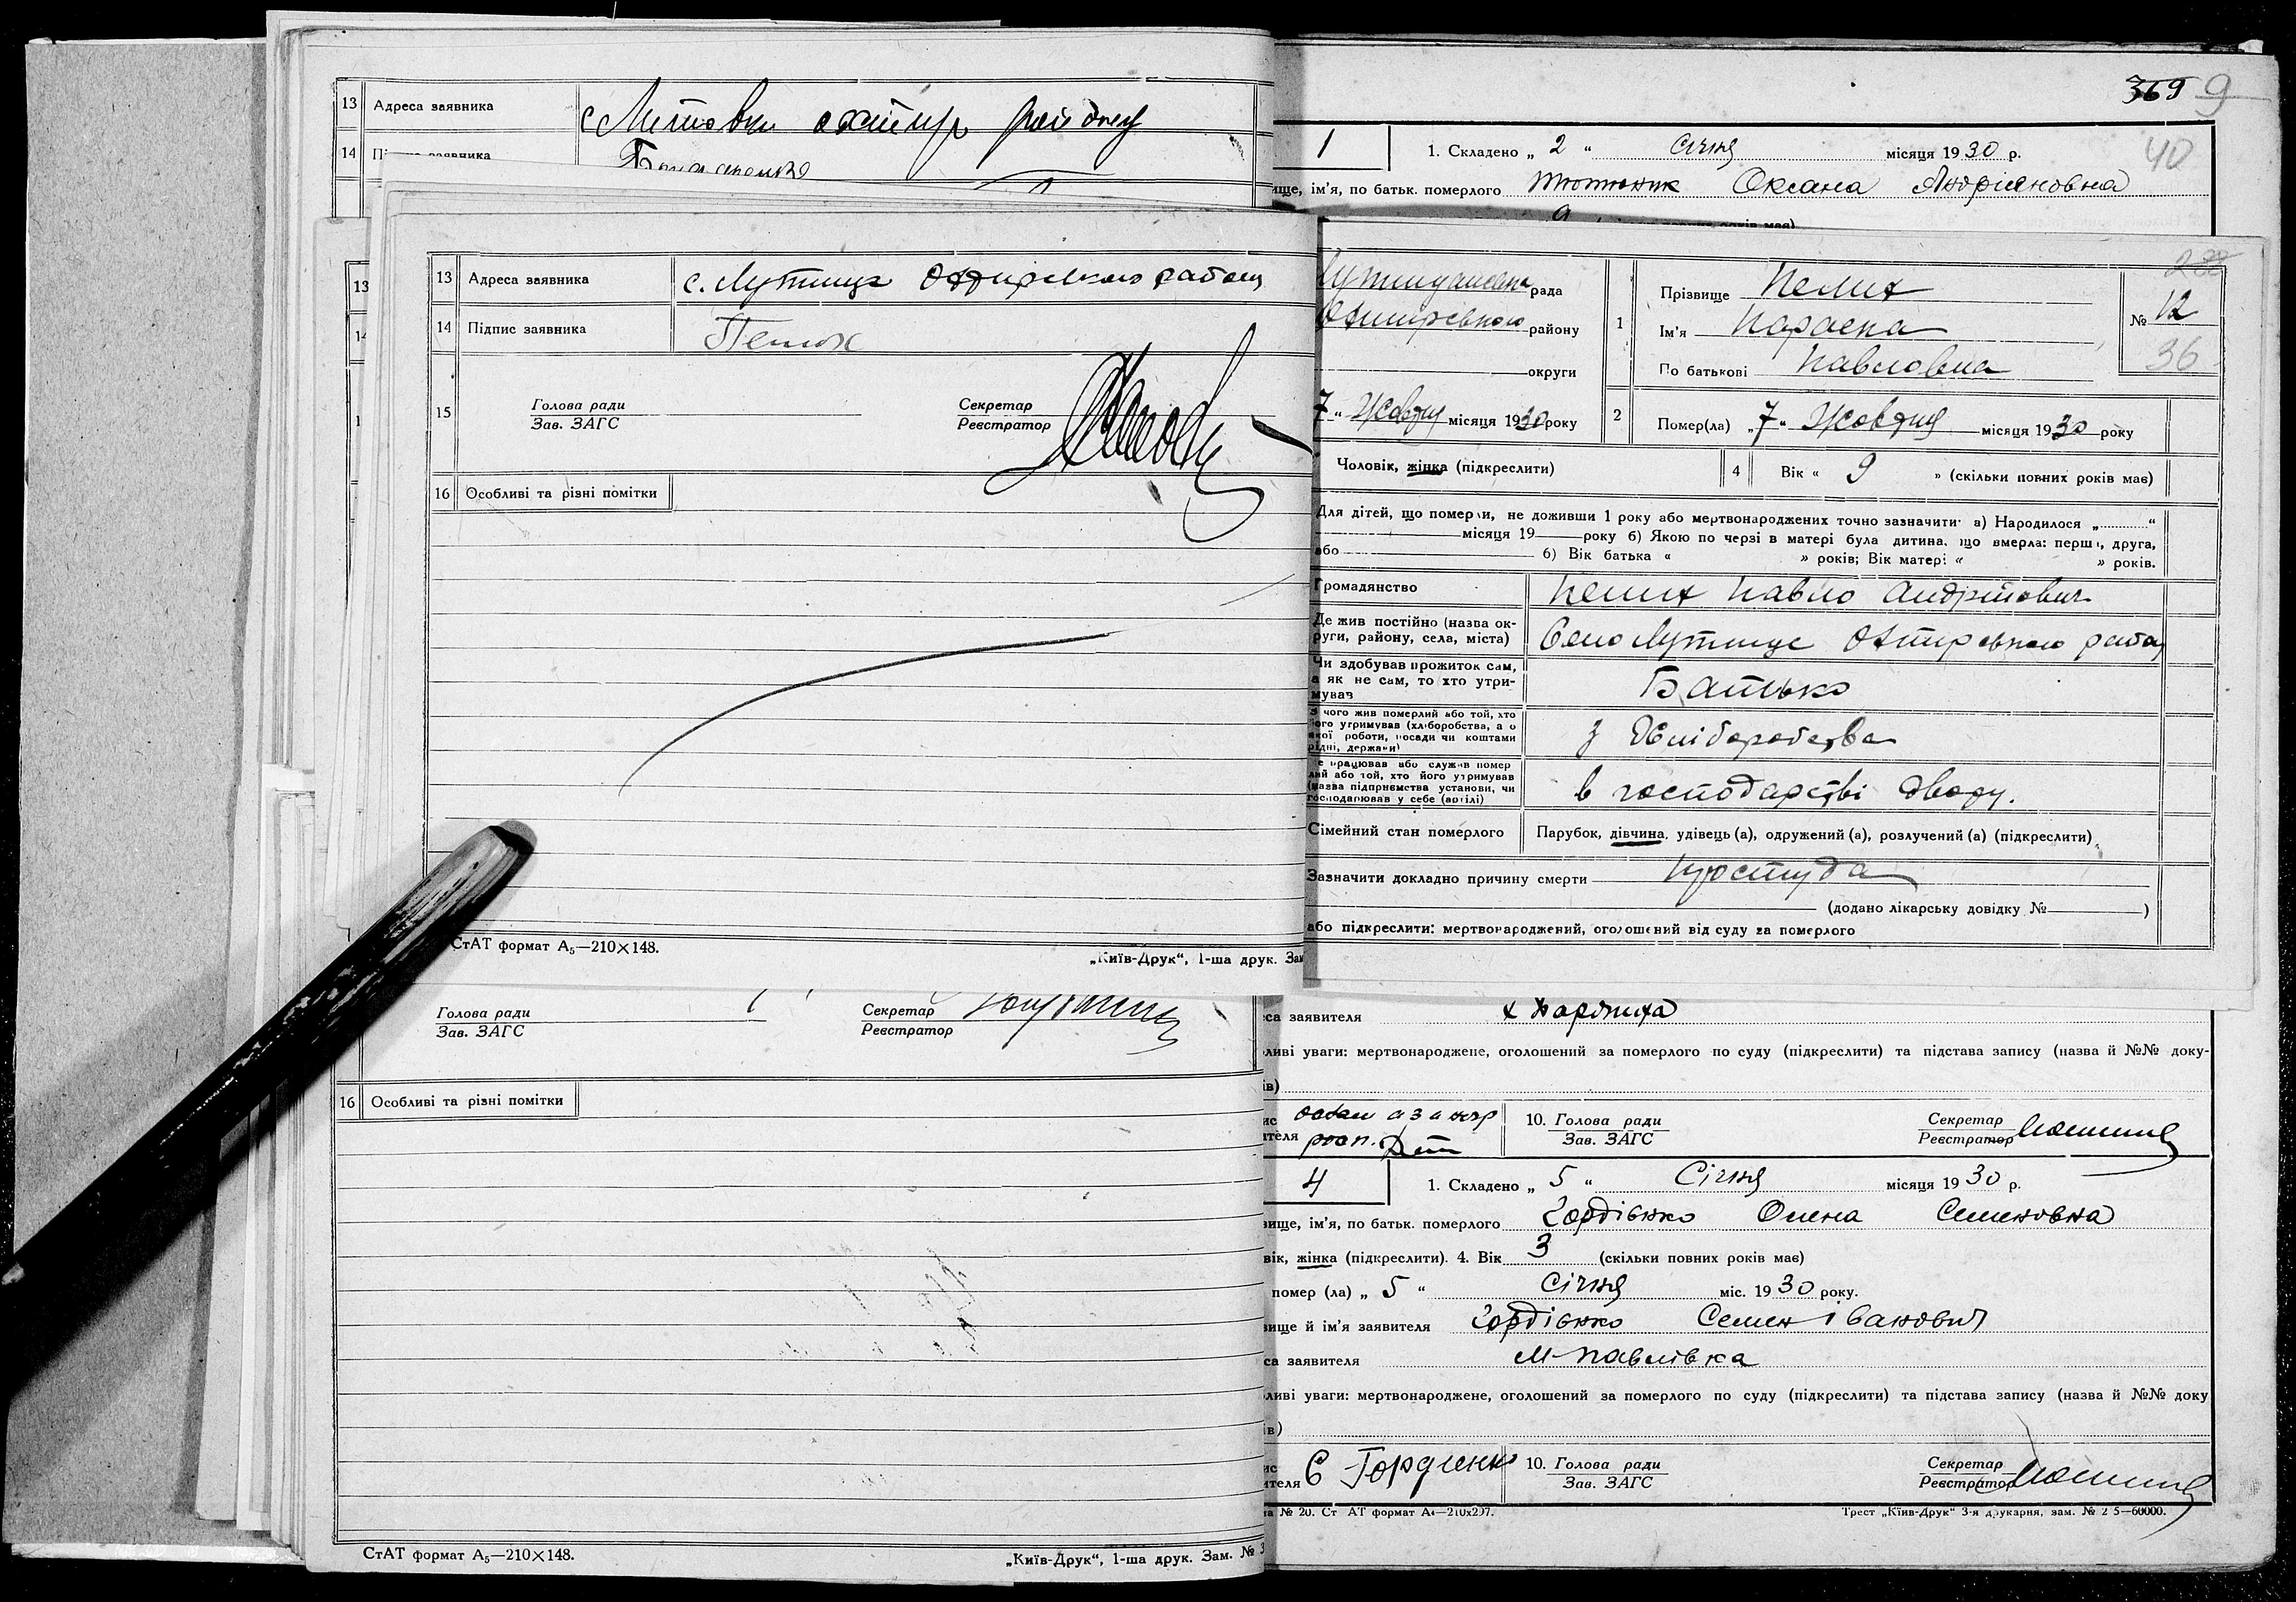 13 Адреса заявника с Литовки охтир району
14 заявника
13 Адреса заявника с. Лутище Охтирського району
14 Підпис заявника Пелих
15 Голова ради
Зав. ЗАГС
Секретар
Реєстратор
16 Особливі та різні помітки
СтАТ формат А₅—210×148.
„Київ-Друк“, 1-ша друк. Зам
Голова ради
Зав. ЗАГС
Секретар
Реєстратор
16 Особливі та різні помітки
СтАТ формат А₅—210×148.
„Київ-Друк“, 1-ша друк. Зам. № 3
369 9
40
1
1. Складено „ 2 “ Січня місяця 1930 р.
ище, ім’я, по батьк. померлого Тютюник Оксана Андріяновна
рада
Охтирського району
округи
7 “ Жовтня місяця 1930 року
1 Прізвище Пелих
Ім’я Параска
По батькові Павловна
№ 12
36
2 Помер(ла) „ 7 “ Жовтня місяця 1930 року
Чоловік, жінка (підкреслити)
4 Вік « 9 » (скільки повних років має)
Для дітей, що померли, не доживши 1 року або мертвонароджених точно зазначити: а) Народилося „ “
місяця 19 року б) Якою по черзі в матері була дитина, що вмерла: перша, друга,
або б) Вік батька « » років; Вік матері « » років.
Громадянство Пелих Павло Андрійович
Де жив постійно (назва ок-
руги, району, села, міста) Село Лутище Охтирського району
Чи здобував прожиток сам,
а як не сам, то хто утри-
мував Батько
З чого жив померлий або той, хто
його утримував (хліборобства, а о
якої роботи, посади чи коштами
рідні, держави) з Хліборобства
Де працював або служив помер
лий або той, хто його утримував
(назва підприємства установи, чи
господарював у себе (артілі) в господарстві двору.
Сімейний стан померлого Парубок, дівчина, удівець (а), одружений (а), розлучений (а) (підкреслити)
Зазначити докладно причину смерти Простуда
(додано лікарську довідку № )
або підкреслити: мертвонароджений, оголошений від суду за померлого
са заявителя
ливі уваги: мертвонароджене, оголошений за померлого по суду (підкреслити) та підстава запису (назва й №№ доку-
ів)
ис
ителя
10. Голова ради
Зав. ЗАГС
Секретар
Реєстратор
4
1. Складено „ 5 “ Січня місяця 1930 р.
вище, ім’я, по батьк. померлого Гордієнко Олена Семеновна
вік, жінка (підкреслити). 4. Вік 3 (скільки повних років має)
помер (ла) „ 5 “ Січня міс. 1930 року.
вище й ім’я заявителя Гордієнко Семен Іванович
са заявителя М-Павлівка
ливі уваги: мертвонароджене, оголошений за померлого по суду (підкреслити) та підстава запису (назва й №№ доку
ів)
ис
ителя С Гордиенко
10. Голова ради
Зав. ЗАГС
Секретар
Реєстратор
а № 20. Ст АТ формат А₄—210x297.
Трест „Київ-Друк“ 3-я друкарня, зам. № 2 5—60000.